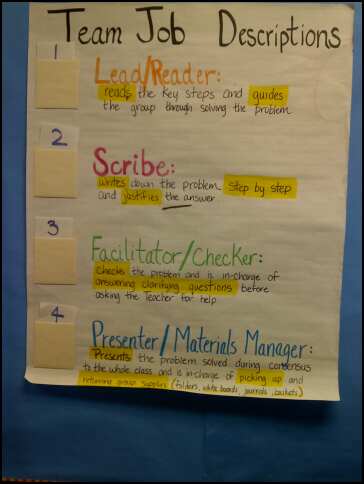 Team Job Descriptions
1
Lead/Reader:
reads the key steps and guides
the group through solving the problem
2
Scribe:
writes down the problem step by step
and justifies the answer
3
Facilitator/Checker:
Checks the problem and is in-charge of
answering clarifying questions before
asking the Teacher for help
4
Presenter/Materials Manager:
Presents the problem solved during consensus
to the whole class and is in-charge of picking up and
returning group supplies (folders, white boards, journals, baskets)